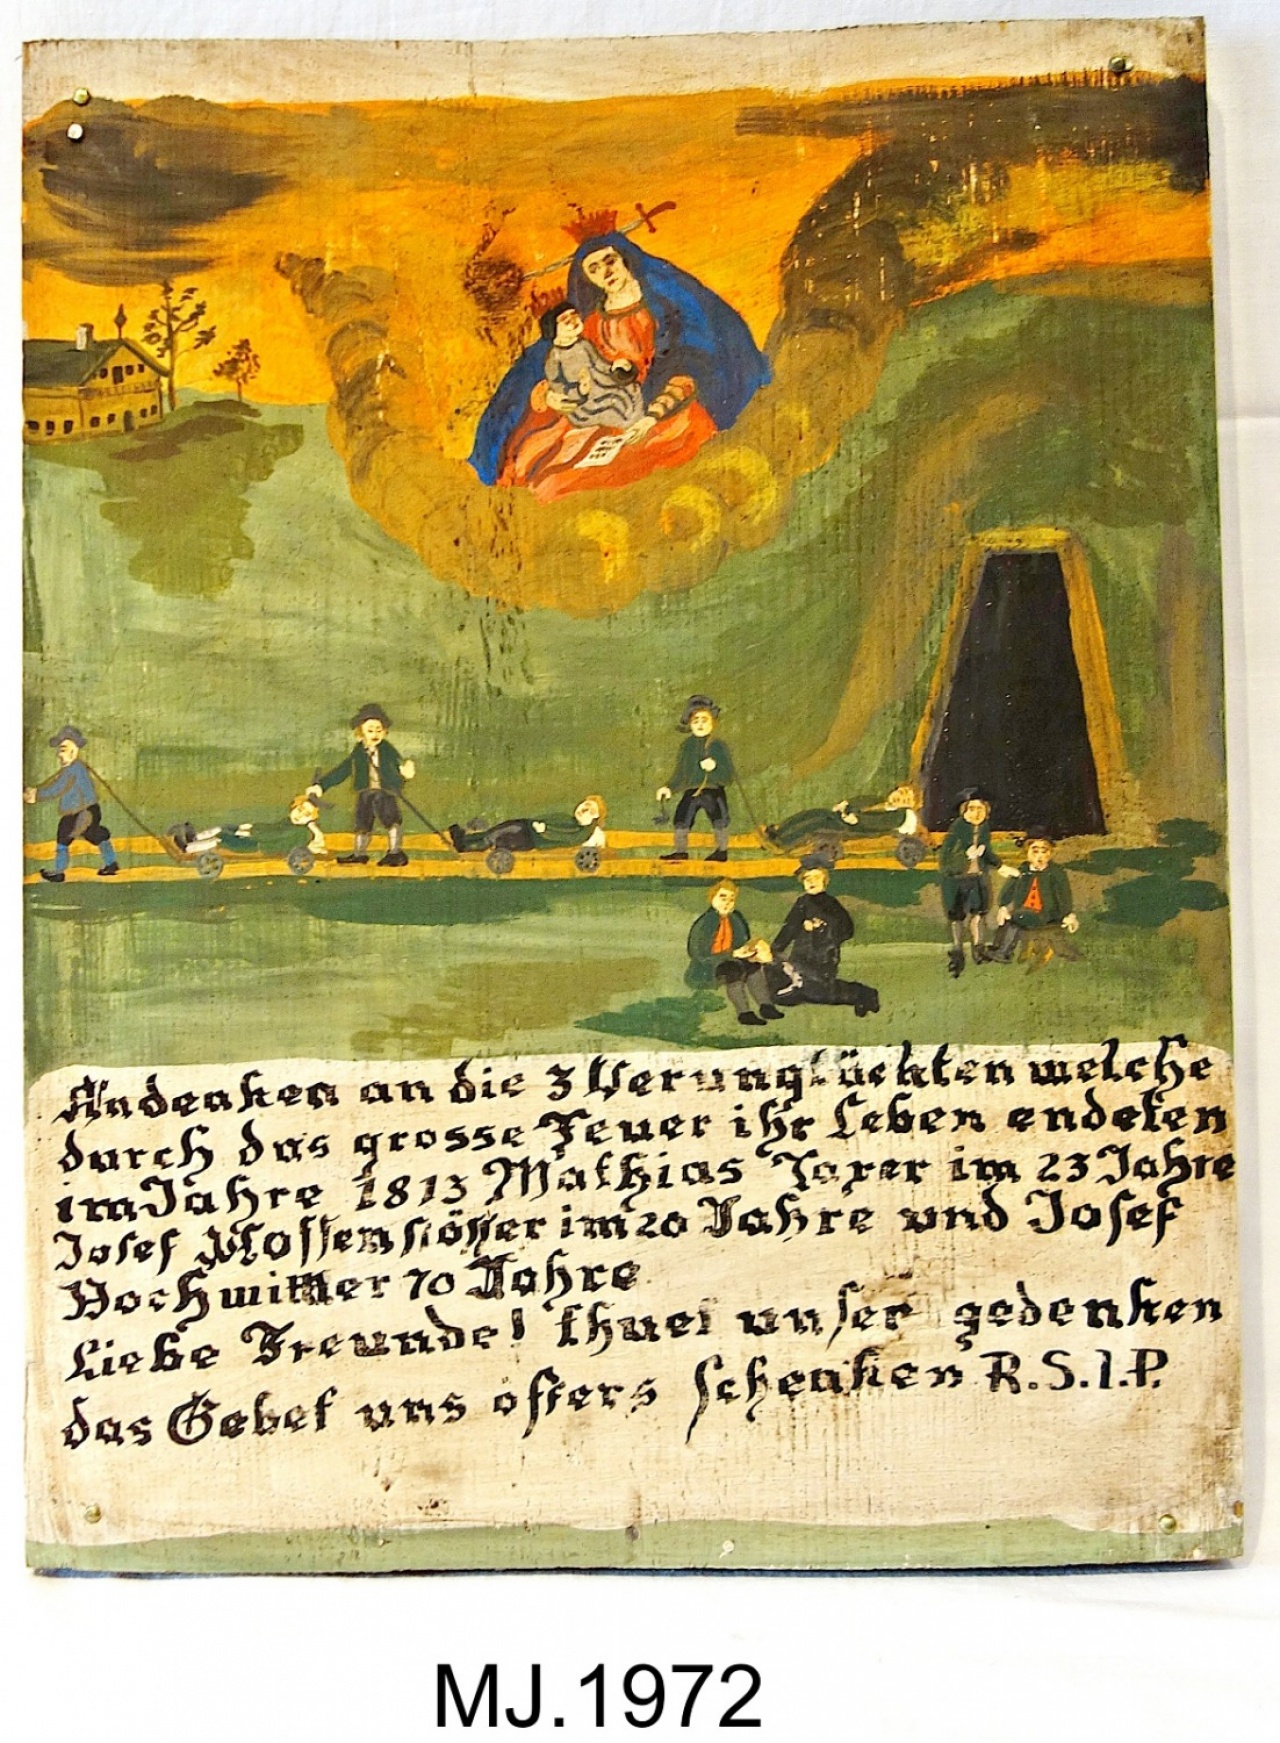 Andenken an die 3 Verunglückten welche
durch das grosse Feuer ihr Leben endeten
im Jahre 1813 Mathias Taxer im 23 Jahre
Josef im 20 Jahre und Josef
Hochwimmer 70 Jahre
Liebe Freunde! thuet unser gedenken
das Gebet uns öfters schenken R.S.I.P.
MJ.1972